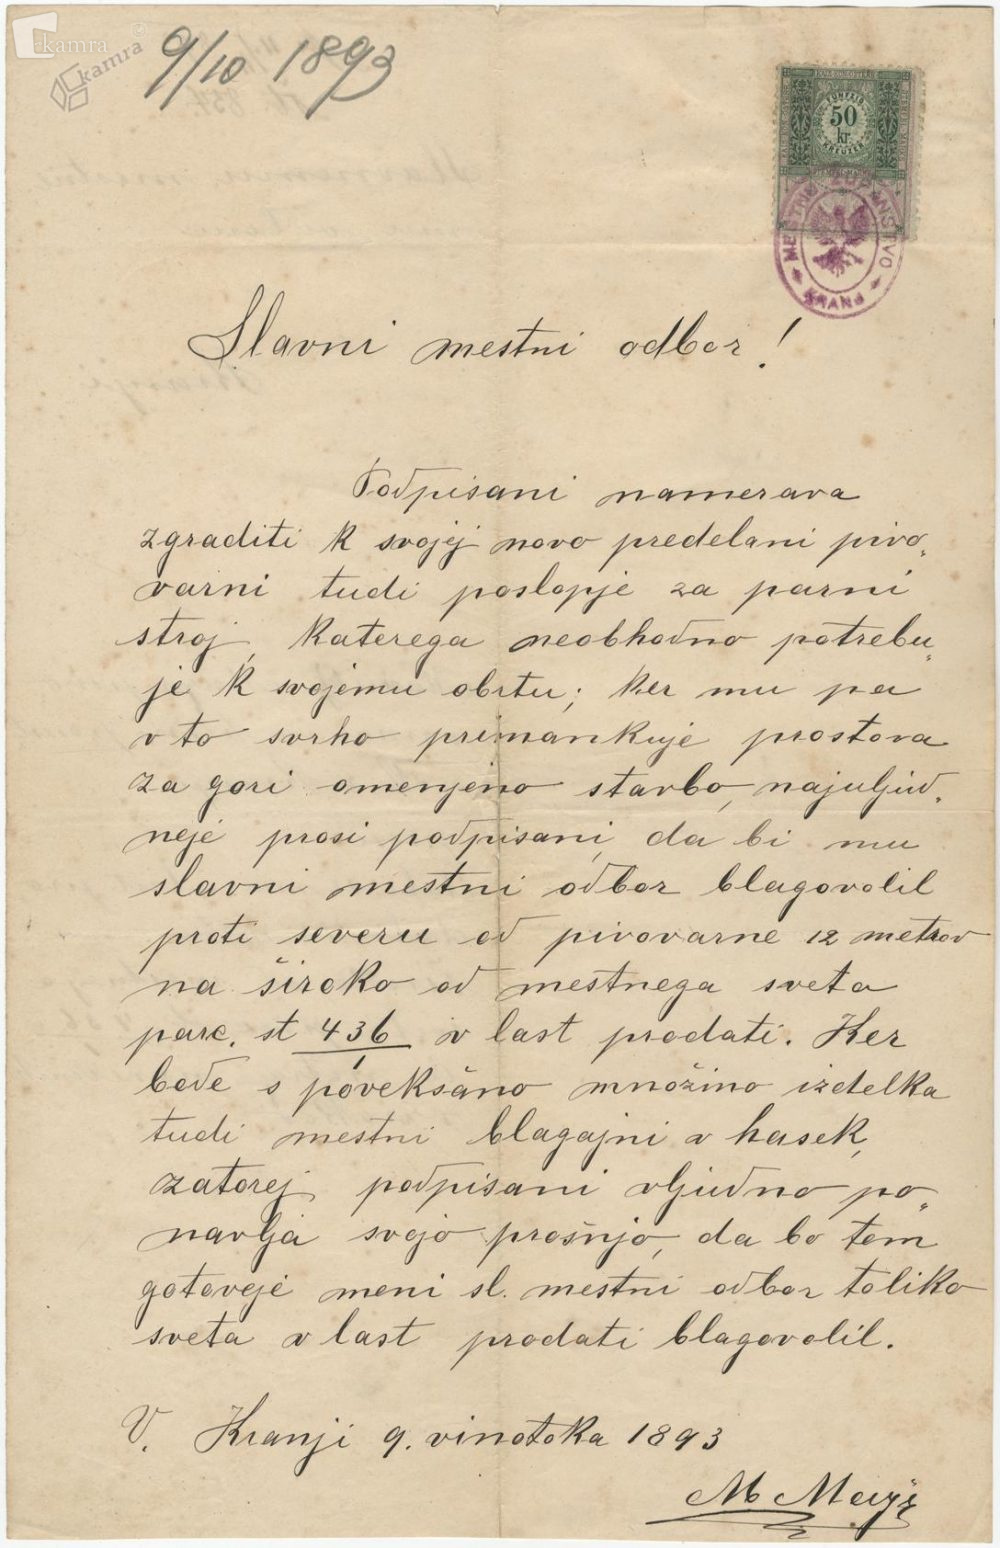 kamra
kamra
9/10 1893
FÜNFZIG
50
kr.
KREUZER
MESTNO ŽUPANSTVO
KRANJ
Slavni mestni odbor!
Podpisani namerava
zgraditi k svojej novo predelani pivo„
varni tudi poslopje za parni
stroj, katerega neobhodno potrebu„
je k svojemu obrtu; ker mu pa
v to svrho primankuje prostora
za gori omenjeno stavbo, najuljud„
neje prosi podpisani, da bi mu
slavni mestni odbor blagovolil
proti severu od pivovarne 12 metrov
na široko od mestnega sveta
parc. št 436/1 v last prodati. Ker
bode s povekšano množino izdelka
tudi mestni blagajni v hasek,
zatorej podpisani vljudno po„
navlja svojo prošnjo, da bo tem
gotoveje meni sl. mestni odbor toliko
sveta v last prodati blagovolil.
V. Kranji 9. vinotoka 1893
M Mayr